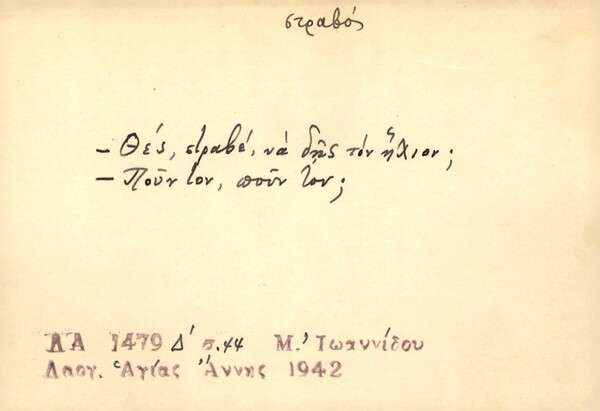 στραβός
– Θές, στραβέ, νά δῇς τόν ἥλιον;
– Ποῦν τον, ποῦν τον;
ΛΑ 1479 Δ' σ. 44 Μ. Ἰωαννίδου
Λαογ. Ἁγίας Ἄννης 1942